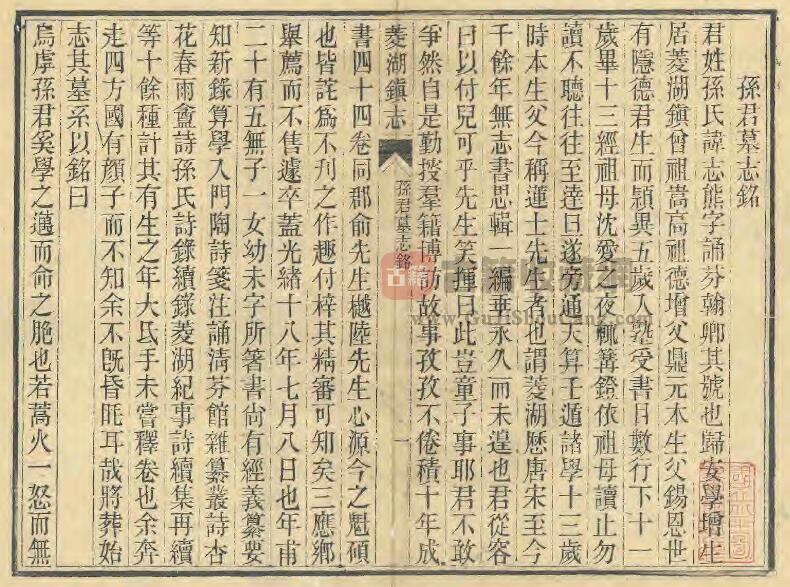 孫君墓志銘
君姓孫氏諱志熊字誦芬翰卿其號也歸安學增生
居菱湖鎮曾祖嵩高祖德增父鼎元本生父錫恩世
有隱德君生而穎異五歲入塾受書日數行下十一
歲畢十三經祖母沈愛之夜輒篝鐙依祖母讀止勿
讀不聽往往至達旦遂旁通天算壬遁諸學十三歲
時本生父今稱蓮士先生者也謂菱湖歷唐宋至今
千餘年無志書思輯一編垂永久而未遑也君從容
曰以付兒可乎先生笑揮曰此豈童子事耶君不敢
爭然自是勤搜羣籍博訪故事孜孜不倦積十年成
菱湖鎮志
孫君墓志銘
一
書四十四卷同郡俞先生樾陸先生心源今之魁碩
也皆詫為不刋之作趣付梓其精審可知矣三應鄉
舉薦而不售遽卒蓋光緒十八年七月八日也年甫
二十有五無子一女幼未字所箸書尙有經義纂要
知新錄算學入門陶詩箋注誦淸芬館雜纂叢詩杏
花春雨盦詩孫氏詩錄續錄菱湖紀事詩續集再續
等十餘種計其有生之年大氐手未嘗釋卷也余奔
走四方國有顏子而不知余不旣昏眊耳哉將葬始
志其墓系以銘曰
烏虖孫君奚學之邁而命之脃也若蒿火一怒而無
古籍
古籍收藏网
www.GuJiShouCang.com